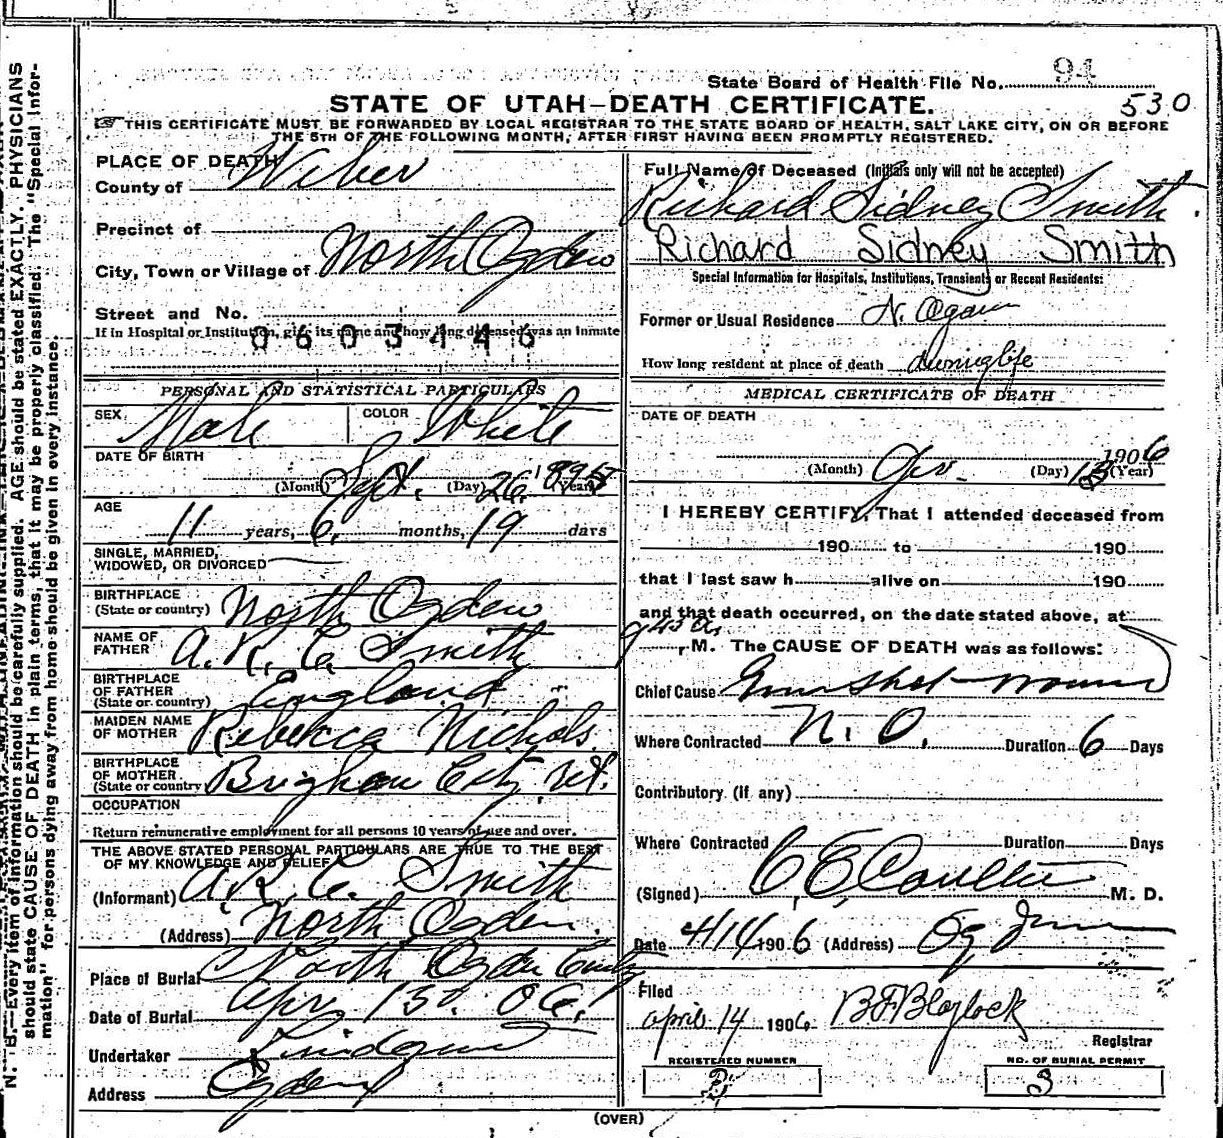 State Board of Health File No. 94
530
STATE OF UTAH—DEATH CERTIFICATE.
☞ THIS CERTIFICATE MUST BE FORWARDED BY LOCAL REGISTRAR TO THE STATE BOARD OF HEALTH, SALT LAKE CITY, ON OR BEFORE
THE 5TH OF THE FOLLOWING MONTH, AFTER FIRST HAVING BEEN PROMPTLY REGISTERED.
PLACE OF DEATH
County of Weber
Precinct of
City, Town or Village of North Ogden
Street and No.
If in Hospital or Institution, give its name and how long deceased was an inmate
0603446
PERSONAL AND STATISTICAL PARTICULARS
SEX Male COLOR White
DATE OF BIRTH
(Month) Sept. (Day) 26 (Year) 1895
AGE
11 years, 6 months, 19 days
SINGLE, MARRIED,
WIDOWED, OR DIVORCED
BIRTHPLACE
(State or country) North Ogden
NAME OF
FATHER A. R. C. Smith
BIRTHPLACE
OF FATHER
(State or country) England
MAIDEN NAME
OF MOTHER Rebekca Nichols
BIRTHPLACE
OF MOTHER
(State or country Brigham City Ut.
OCCUPATION
Return remunerative employment for all persons 10 years of age and over.
THE ABOVE STATED PERSONAL PARTICULARS ARE TRUE TO THE BEST
OF MY KNOWLEDGE AND BELIEF
(Informant) A. R. C. Smith
(Address) North Ogden.
Place of Burial North Ogden Cemtry
Date of Burial Apr 15. 06.
Undertaker Lindquist
Address Ogden
Full Name of Deceased (Initials only will not be accepted)
Richard Sidney Smith.
Richard Sidney Smith
Special Information for Hospitals, Institutions, Transients or Recent Residents:
Former or Usual Residence N. Ogden
How long resident at place of death during life
MEDICAL CERTIFICATE OF DEATH
DATE OF DEATH
1906
(Month) Apr. (Day) 13 (Year)
I HEREBY CERTIFY, That I attended deceased from
190 to 190
that I last saw h alive on 190
and that death occurred, on the date stated above, at
945 a. M. The CAUSE OF DEATH was as follows:
Chief Cause Gun shot wound
Where Contracted N. O. Duration 6 Days
Contributory (if any)
Where Contracted Duration Days
(Signed) C E Coulter M. D.
Date 4/14 1906 (Address) Ogden
Filed
april 14 1906 B F Blaylock
Registrar
REGISTERED NUMBER NO. OF BURIAL PERMIT
3 3
(OVER)
N. B.—Every item of information should be carefully supplied. AGE should be stated EXACTLY. PHYSICIANS
should state CAUSE OF DEATH in plain terms, that it may be properly classified. The "Special Infor-
mation" for persons dying away from home should be given in every instance.